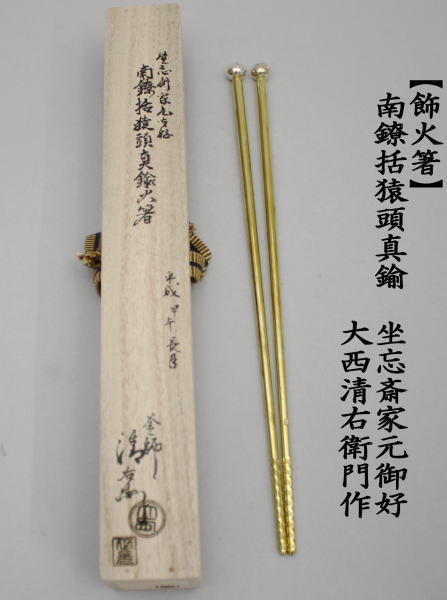 【飾火箸】
南鐐括猿頭真鍮
坐忘斎家元御好
大西清右衛門作
坐忘斎家元御好
南鐐括猿頭真鍮火箸
平成甲午長月
釜師
清右衛門